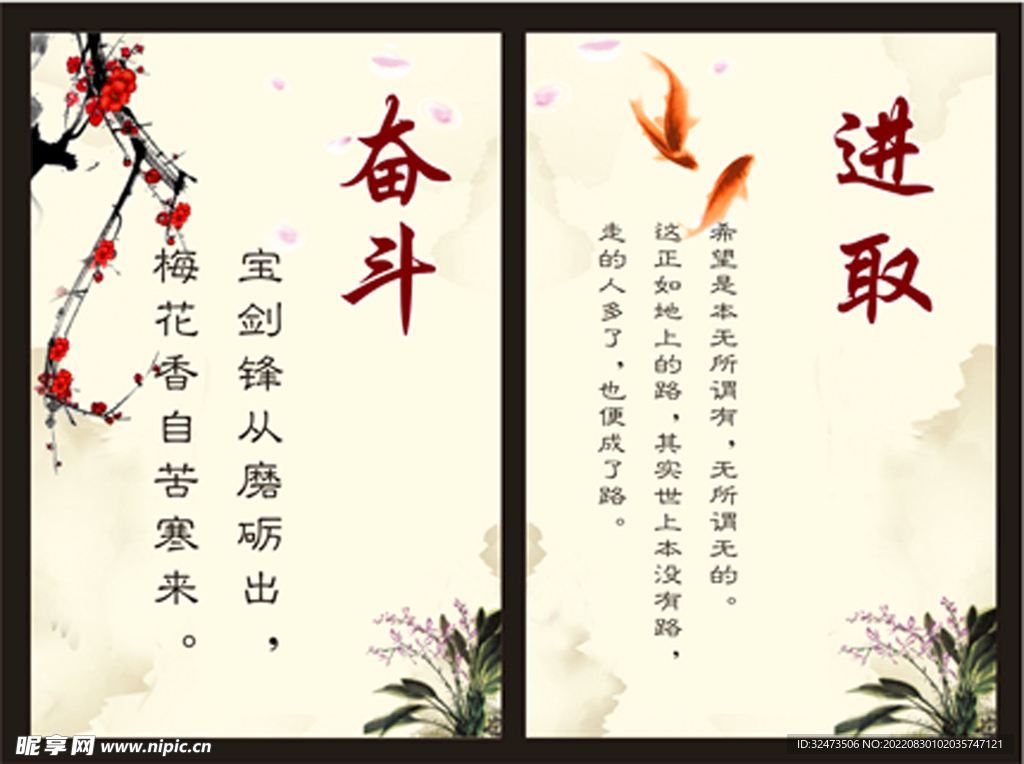 奋斗
宝剑锋从磨砺出，
梅花香自苦寒来。
进取
希望是本无所谓有，无所谓无的。
这正如地上的路，其实世上本没有路，
走的人多了，也便成了路。
昵享网 www.nipic.cn
ID:32473506 NO:20220830102035747121